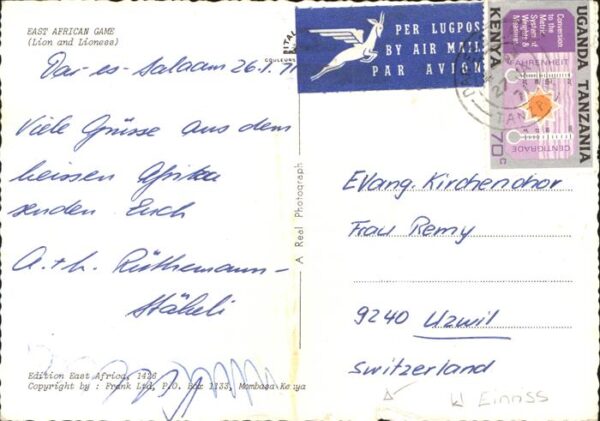 EAST AFRICAN GAME
(Lion and Lioness)
Dar-es-Salaam 26.1.71
Viele Grüsse aus dem
heissen Afrika
senden Euch
A. + h. Rüthemann-
Stäheli
Edition East Africa, 1426
Copyright by : Frank Ltd, P.O. Box 1133, Mombasa Kenya
A Real Photograph
PER LUGPOS
BY AIR MAIL
PAR AVION
UGANDA TANZANIA
KENYA 70c
Conversion
to the
Metric
System of
Weights &
Measures
FAHRENHEIT
CENTIGRADE
Evang. Kirchenchor
Frau Remy
9240 Uzwil
Switzerland
Einriss